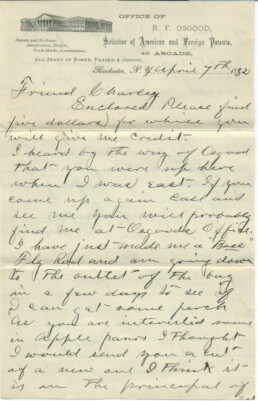 OFFICE OF
R. F. OSGOOD,
Solicitor of American and Foreign Patents,
40 ARCADE,
Patents and Reissues,
Interferences, Designs,
Trade Marks, Examinations.
OLD STAND OF BURKE, FRASER & OSGOOD.
Rochester, N. Y. April 7th 1882
Friend Charley
Enclosed Please find
five dollars) for which you
will give me credit.
I heard by the way of Osgood
that you were up here
when I was east. If you
come up again call and
see me you will probably
find me at Osgoods Office.
I have just made me a "Base"
Fly Rod and am going down
to the outlet of the bay
in a few days to see if
I can get some perch
As you are interested some
in Apple parers I thought
I would send you a cut
of a new one I think it
is on the principal of